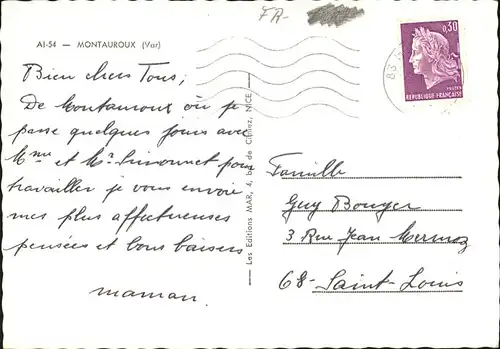 FR-
AI-54 — MONTAUROUX (Var)
0,30
POSTES
REPUBLIQUE FRANÇAISE
83
Bien chers Tous;
De Montauroux où je
passe quelques jours avec
Mme et Mr Simonnet pour
travailler je vous envoie
mes plus affectueuses
pensées et bons baisers
maman.
— Les Editions MAR, 4, bd de Cimiez, NICE —
Famille
Guy Bouyer
3 Rue Jean Mermoz
68- Saint-Louis